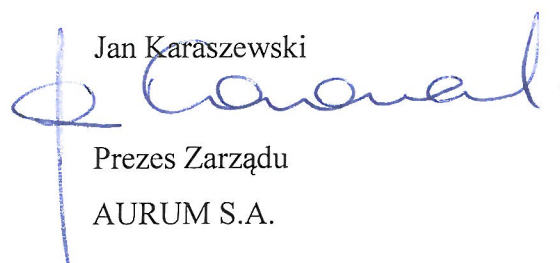 Jan Karaszewski
Prezes Zarządu
AURUM S.A.